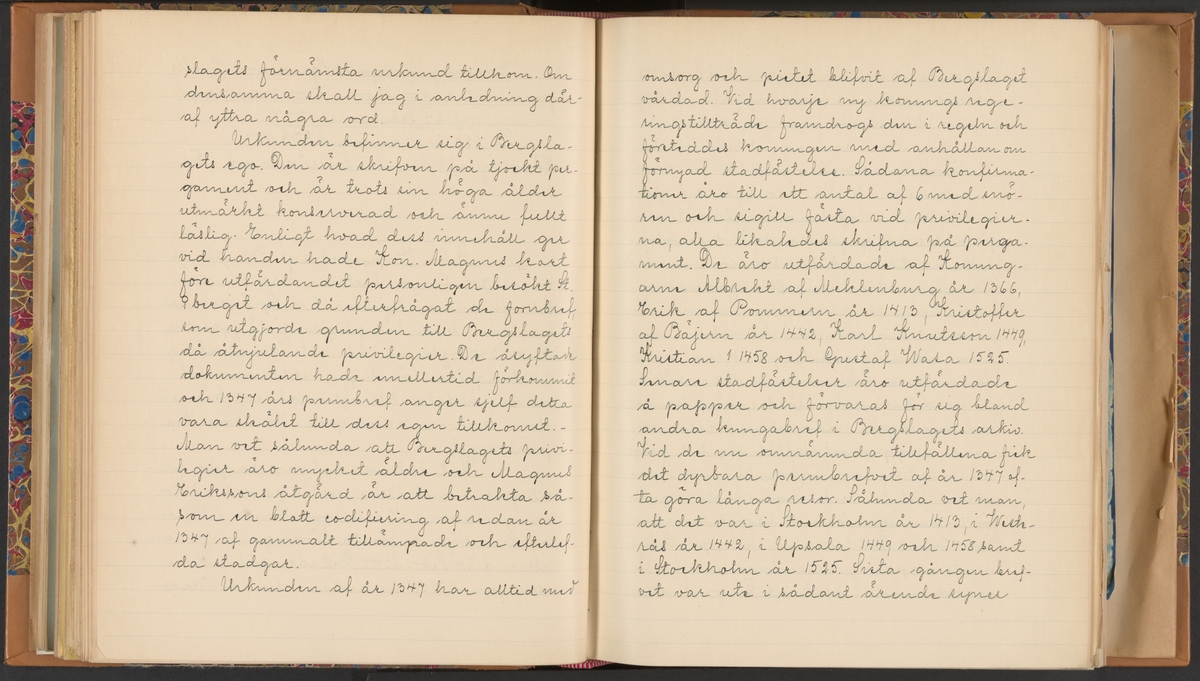 slagets förnämsta urkund tillkom. Om
densamma skall jag i anledning där-
af yttra några ord.
Urkunden befinner sig i Bergsla-
gets ego. Den är skrifven på tjockt per-
gament och är trots sin höga ålder
utmärkt konserverad och ännu fullt
läslig. Enligt hvad dess innehåll ger
vid handen hade Kon. Magnus kort
före utfärdandet personligen besökt St.
berget och då efterfrågat de fornbref
som utgjorde grunden till Bergslagets
då åtnjutande privilegier. De åsyftade
dokumenten hade emellertid förkommit
och 1347 års pennbref anger sjelf detta
vara skälet till dess egen tillkomst. -
Man vet sålunda att Bergslagets privi-
legier äro mycket äldre och Magnus
Erikssons åtgärd är att betrakta så-
som en blott codifiering af redan år
1347 af gammalt tillämpade och efterlef-
da stadgar.
Urkunden af år 1347 har alltid med
omsorg och pietet blifvit af Bergslaget
vårdad. Vid hvarje ny konungs rege-
ringstillträde framdrogs den i regeln och
företeddes konungen med anhållan om
förnyad stadfästelse. Sådana konfirma-
tioner äro till ett antal af 6 med snö-
ren och sigill fästa vid privilegier-
na, alla likaledes skrifna på perga-
ment. De äro utfärdade af Konung-
arne Albrekt af Meklenburg år 1366,
Erik af Pommern år 1413, Kristoffer
af Bäjern år 1442, Karl Knutsson 1449,
Kristian 1 1458 och Gustaf Wasa 1525.
Senare stadfästelser äro utfärdade
å papper och förvaras för sig bland
andra kungabref i Bergslagets arkiv.
Vid de nu omnämnda tillfällena fick
det dyrbara pennbrefvet af år 1347 of-
ta göra långa resor. Sålunda vet man,
att det var i Stockholm år 1413, i Weste-
rås år 1442, i Upsala 1449 och 1458 samt
i Stockholm år 1525. Sista gången bref-
vet var ute i sådant ärende synes